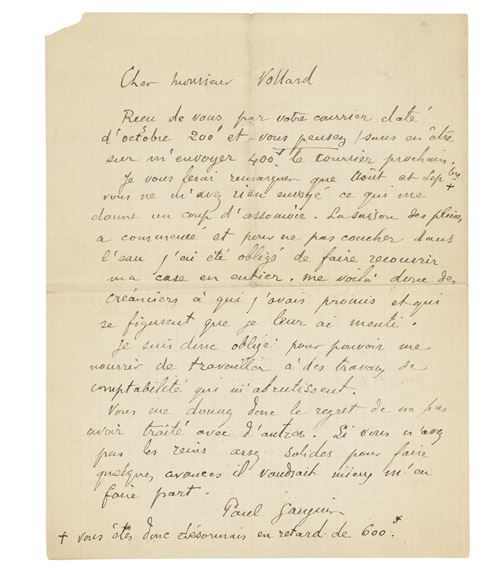 Cher monsieur Vollard
Reçu de vous par votre courrier daté
d'octobre 200f et vous pensez /sans en être
sur m'envoyer 400f le courrier prochain.
Je vous ferai remarquer que Août et Sep bre +
vous ne m'avez rien envoyé ce qui me
donne un coup d'assomoir. La saison des pluies
a commencé et pour ne pas coucher dans
l'eau j'ai été obligé de faire recouvrir
ma case en entier. me voilà donc des
créanciers à qui j'avais promis et qui
se figurent que je leur ai menti.
Je suis donc obligé pour pouvoir me
nourrir de travailler à des travaux de
comptabilité qui m'abrutissent.
Vous me donnez donc le regret de ne pas
avoir traité avec d'autres. Si vous n'avez
pas les reins assez solides pour faire
quelques avances il vaudrait mieux m'en
faire part.
Paul Gauguin
+ vous êtes donc désormais en retard de 600f.